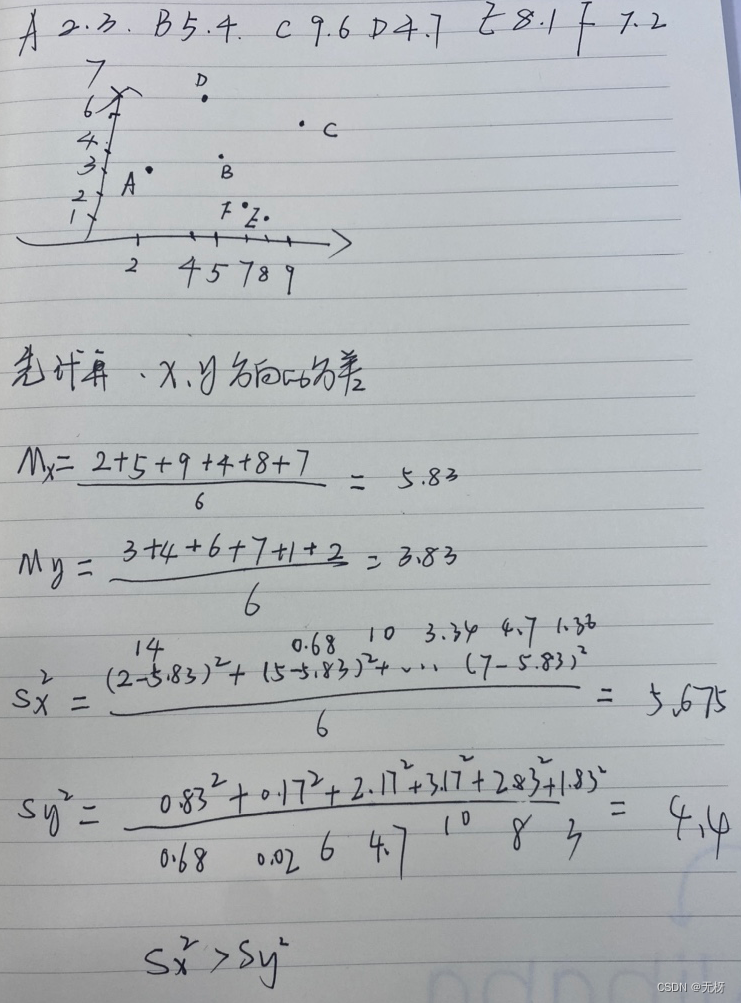 A 2.3. B5.4. C 9.6 D4.7 E 8.1 F 7.2
7
6
4
3
2
1
D
C
A
B
F
E
2 4 5 7 8 9
先计算. x、y方向的方差
Mx = 2+5+9+4+8+7 / 6 = 5.83
My = 3+4+6+7+1+2 / 6 = 3.83
14 0.68 10 3.34 4.7 1.36
Sx² = (2-5.83)²+(5-5.83)²+... (7-5.83)² / 6 = 5.675
Sy² = 0.83²+0.17²+2.17²+3.17²+2.83²+1.83² = 4.4
0.68 0.02 6 4.7 10 8 3
Sx² > Sy²
CSDN @无枒